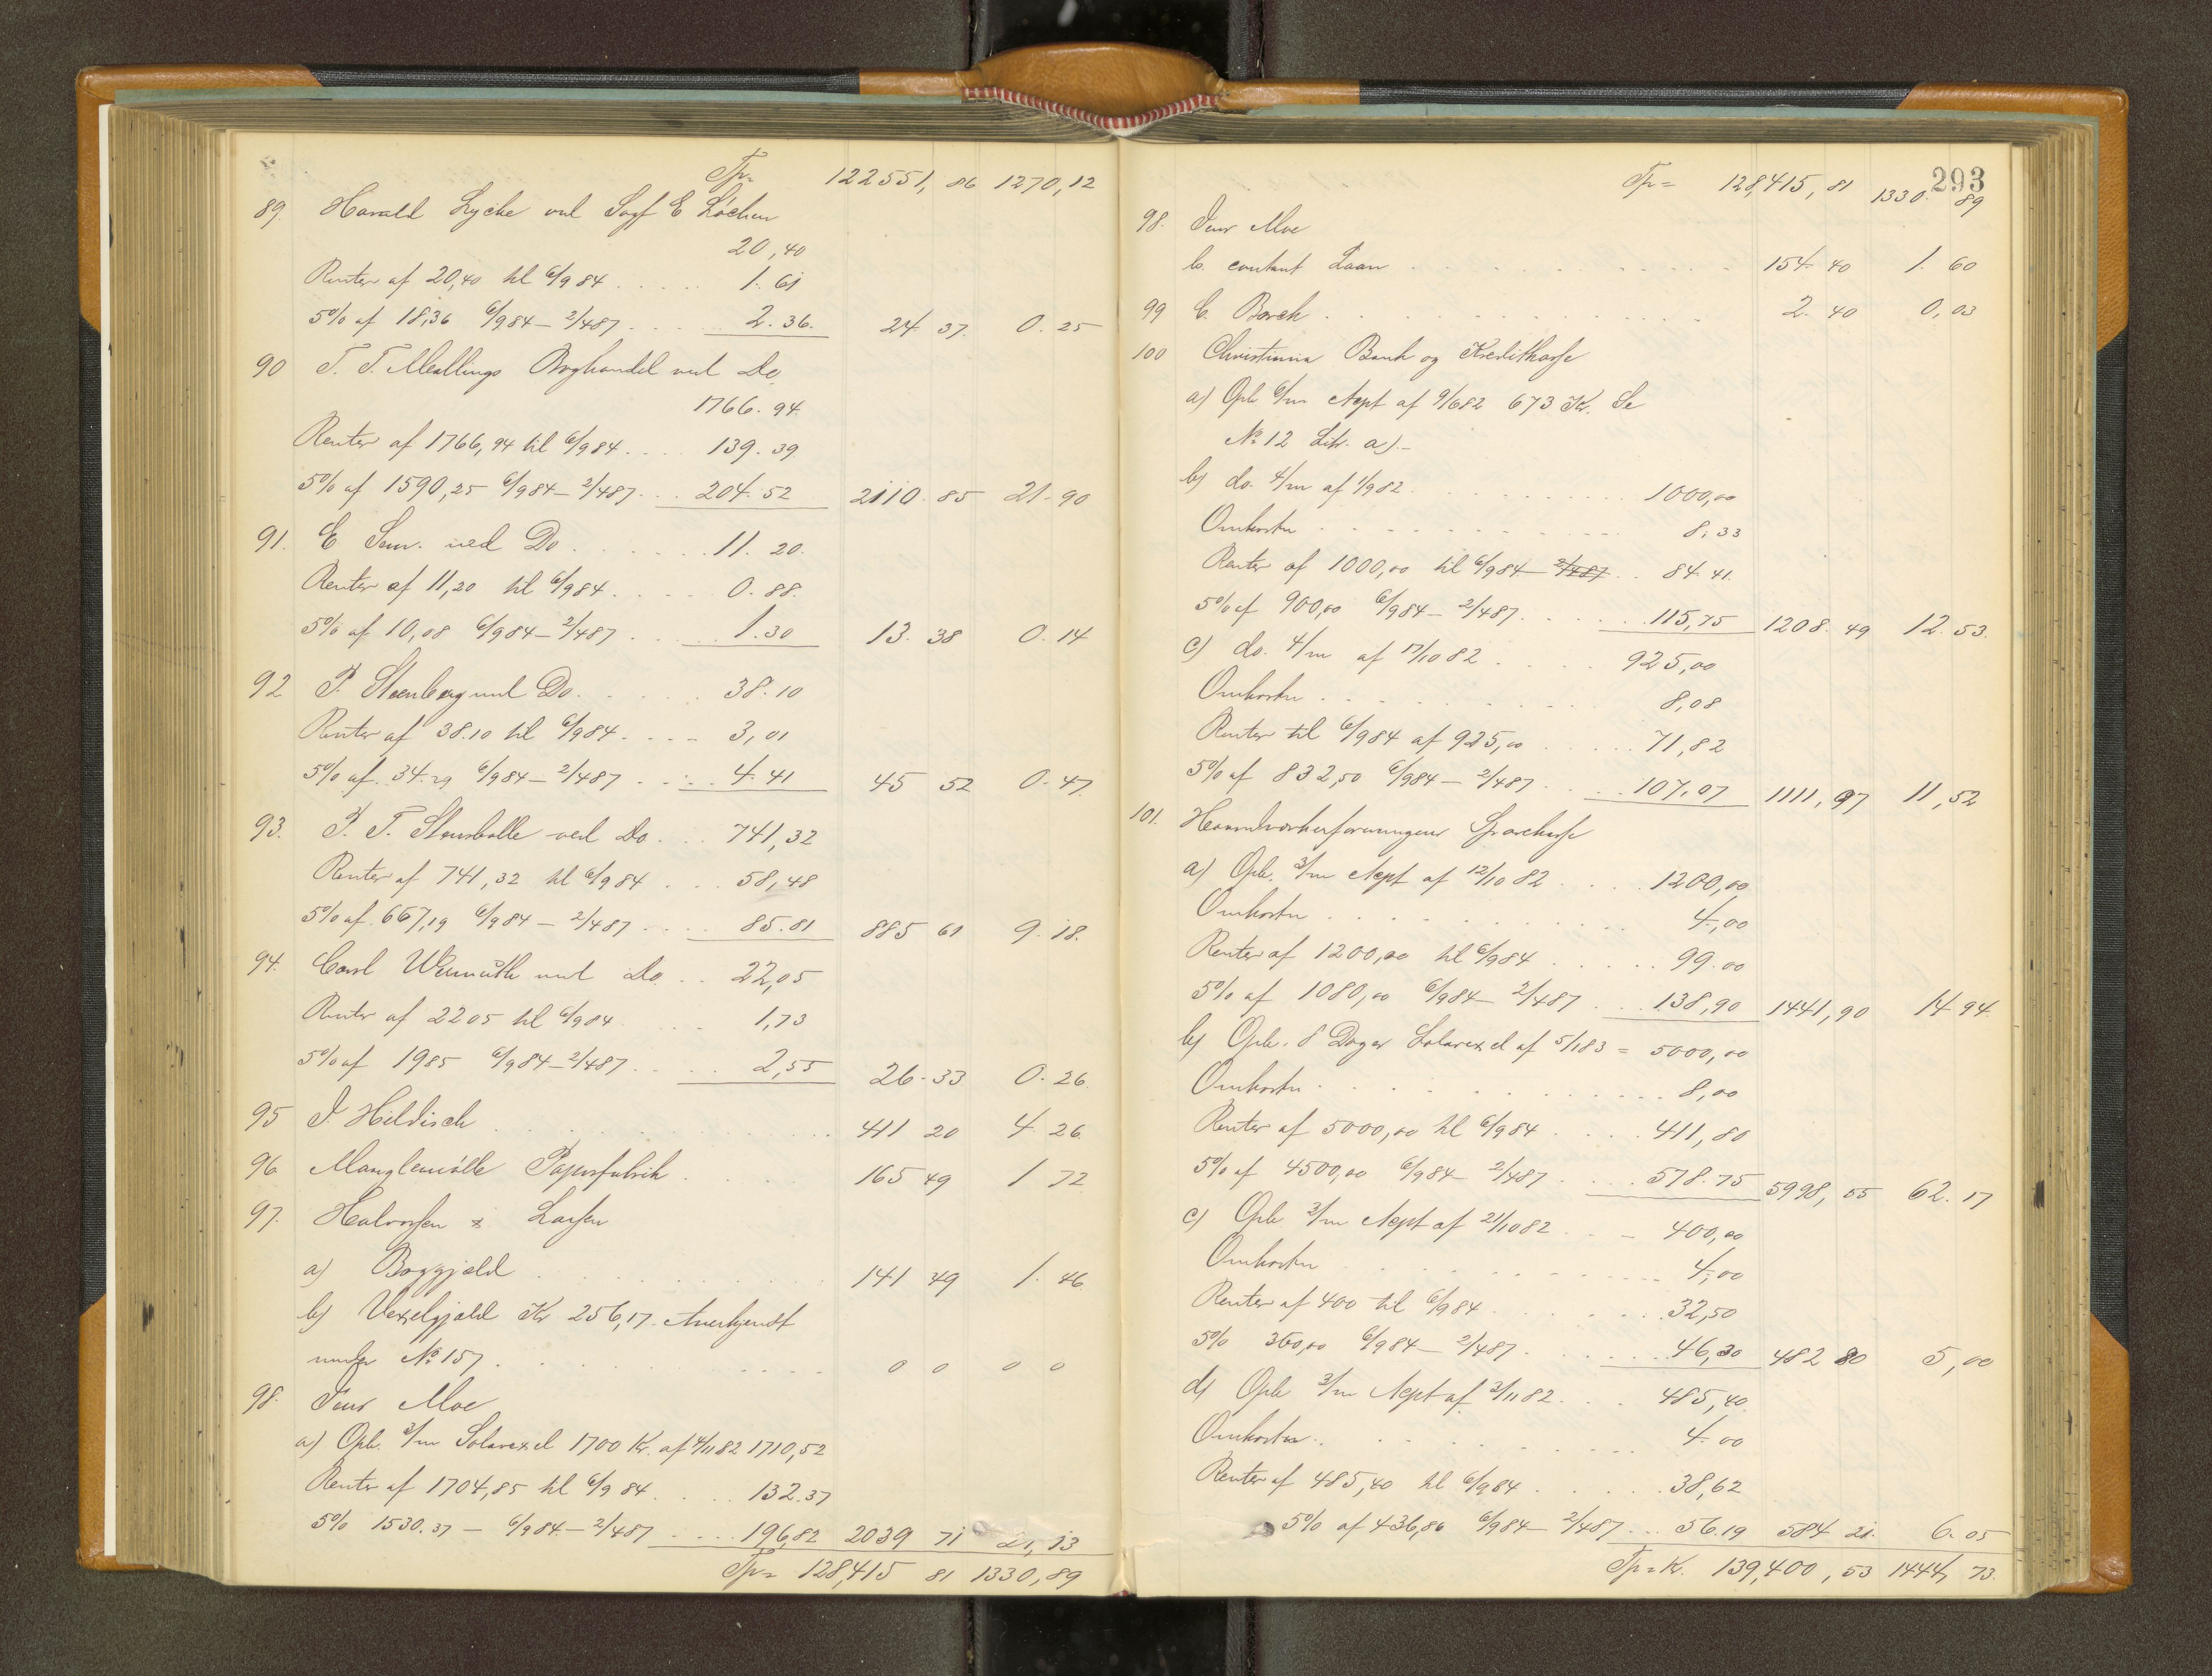 Tp= 122551, 86 1270,12
89. Harald Lyche ved Sagf E Löchen
20,40
Renter af 20,40 til 6/9 84 . . . . . 1. 61
5% af 18,36 6/9 84 – 2/4 87 . . . . 2. 36. 24. 37. 0. 25
90 T. T. Mallings Boghandel ved Do
1766. 94.
Renter af 1766,94 til 6/9 84 . . . . 139. 39
5% af 1590,25 6/9 84 – 2/4 87 . . . 204. 52 2110. 85 21. 90
91. E Sem. ved Do . . . . . . . 11. 20.
Renter af 11,20 til 6/9 84 . . . . . 0. 88.
5% af 10,08 6/9 84 – 2/4 87 . . . . 1. 30 13. 38 0. 14
92 P. Steenberg ved Do. . . . . . 38. 10
Renter af 38.10 til 6/9 84 . . . . 3,01
5% af. 34.29 6/9 84 – 2/4 87 . . . . 4. 41 45 52 0. 47.
93. P. T. Stousballe ved Do . . . 741,32
Renter af 741,32 til 6/9 84 . . . 58,48
5% af. 667,19 6/9 84 – 2/4 87 . . . . 85. 81 885 61 9. 18.
94. Carl Warmuth ved Do . . 22,05
Renter af 22 05 til 6/9 84 . . . . 1,73
5% af 19 85 6/9 84 – 2/4 87 . . . . 2,55 26. 33 0. 26.
95 J. Hildisch . . . . . . . . . . 411 20 4. 26.
96. Manglemölle Papirfabrik . . . . 165 49 1 72
97. Halvorsen & Larsen
a) Boggjæld . . . . . . . . . 141 49 1. 46.
b) Vexelgjæld Kr 256,17. Anerkjendt
under No 157. . . . . . . . . . 0 0 0 0
98. Jens Moe
a) Opl. 3/m Solavexel 1700 Kr. af 4/11 82 1710,52
Renter af 1704,85 til 6/9 84 . . . . 132. 37
5% 1530. 37 – 6/9 84. – 2/4 87 . . . . 196,82 2039 71 21, 13
Tp= 128,415 81 1330,89
293
Tp= 128,415, 81 1330. 89
98. Jens Moe
b. contant Laan . . . . . . . . . 154. 40 1. 60
99 C. Borch . . . . . . . . . . . 2. 40 0, 03
100 Christiania Bank og Kreditkasse
a) Opl 6/m Acpt af 9/6 82 673 Kr. Se
No 12 Litr. a). –
b) do. 4/m af 1/9 82 . . . . . . . . 1000,00
Omkostn . . . . . . . . . . . 8,33
Renter af 1000,00 til 6/9 84 – 2/4 87 . . 84. 41.
5% af 900,00 6/9 84 – 2/4 87 . . . . . 115,75 1208. 49 12. 53.
c) do. 4/m af 17/10 82 . . . . 925,00
Omkostn . . . . . . . . . . 8,08
Renter til 6/9 84 af 925,00 . . . . . 71,82
5% af 832,50 6/9 84 – 2/4 87 . . . . 107,07 1111, 97 11, 52
101. Haandværkerforeningens Sparekasse
a) Opl. 3/m Acpt af 12/10 82 . . . . 1200,00
Omkostn . . . . . . . . . . . 4,00
Renter af 1200,00 til 6/9 84 . . . . . 99. 00
5% af 1080,00 6/9 84 – 2/4 87 . . . 138,90 1441, 90 14. 94.
b) Opl. 8 Dages Solavexel af 5/1 83 = 5000,00
Omkostn . . . . . . . . . . . 8,00
Renter af 5000,00 til 6/9 84 . . . . 411,80
5% af 4500,00 6/9 84 – 2/4 87 . . . . 578. 75 5998, 55 62. 17
c) Opl 3/m Acpt af 21/10 82 . . – 400,00
Omkostn . . . . . . . . . . 4,00
Renter af 400 til 6/9 84 . . . . . . . 32,50
5% 360,00 6/9 84 – 2/4 87 . . . . . 46,30 482 80 5,00
d) Opl 3/m Acpt af 3/11 82 . . . 485,40.
Omkostn . . . . . . . . . . . 4. 00
Renter af 485,40 til 6/9 84 . . . . . 38,62
5% af 436,86 6/9 84 – 2/4 87 . . . 56. 19 584 21. 6. 05
Tp = Kr. 139,400, 53 1444, 73.